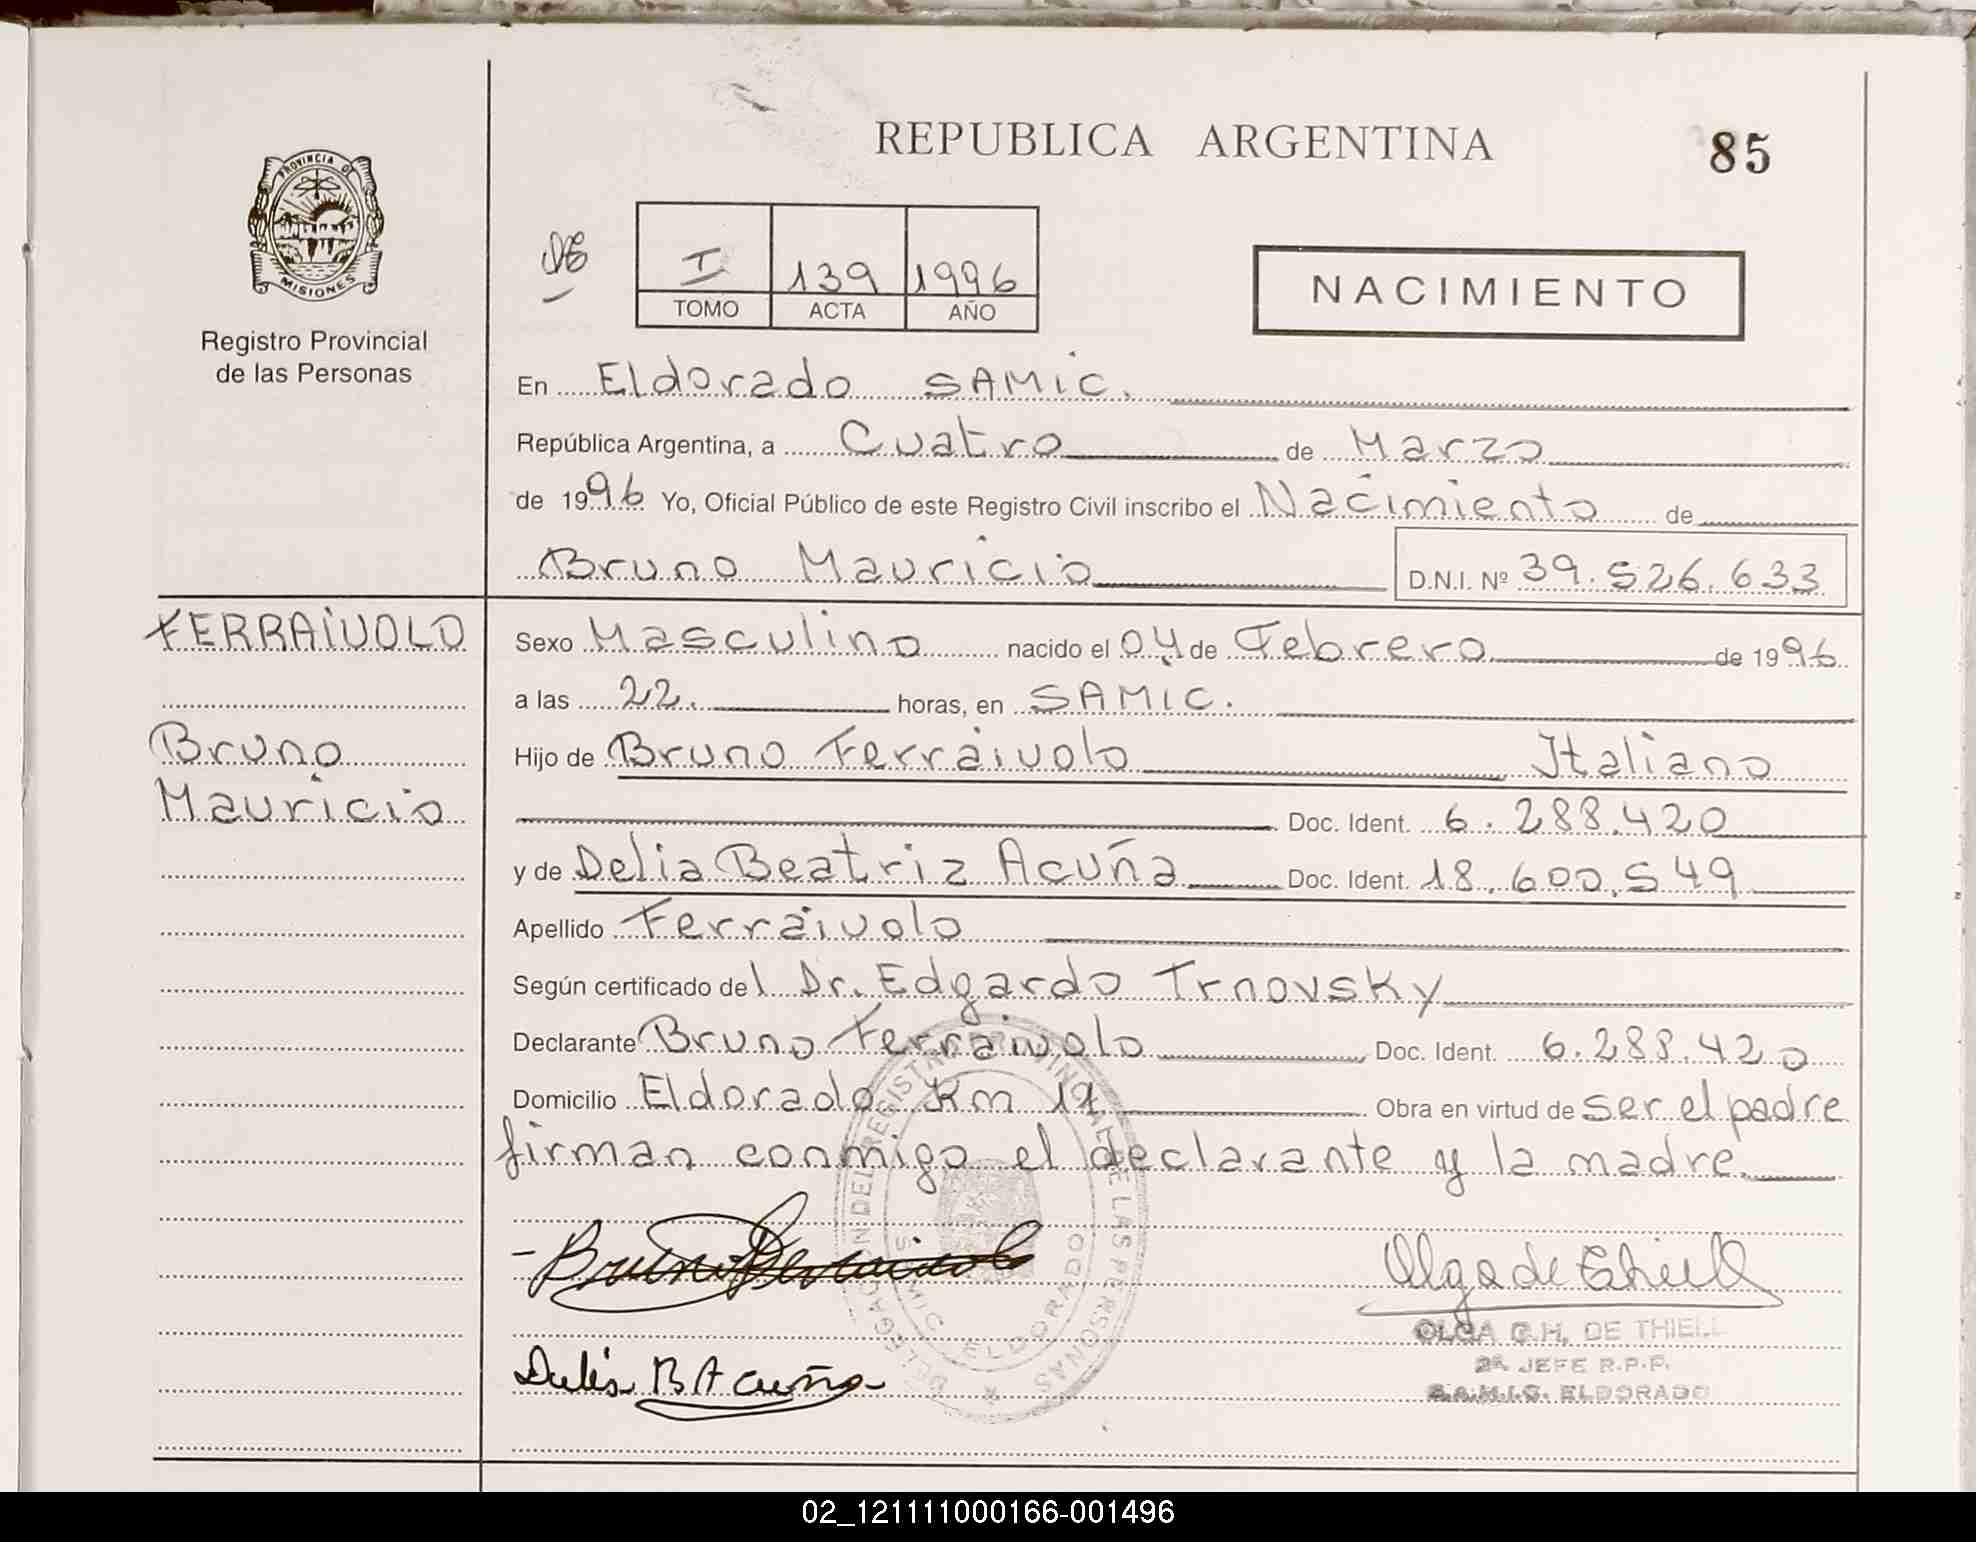 REPUBLICA ARGENTINA
85
PROVINCIA DE
MISIONES
Registro Provincial
de las Personas
I 139 1996
TOMO ACTA AÑO
NACIMIENTO
En Eldorado SAMIC.
República Argentina, a Cuatro de Marzo
de 1996 Yo, Oficial Público de este Registro Civil inscribo el Nacimiento de
Bruno Mauricio D.N.I. Nº 39.526.633
FERRAIUOLO
Bruno
Mauricio
Sexo Masculino nacido el 04 de Febrero de 1996
a las 22. horas, en SAMIC.
Hijo de Bruno Ferraiuolo Italiano
Doc. Ident. 6.288.420
y de Delia Beatriz Acuña Doc. Ident. 18.600.549
Apellido Ferraiuolo
Según certificado del Dr. Edgardo Trnovsky
Declarante Bruno Ferraiuolo Doc. Ident. 6.288.420
Domicilio Eldorado Km 11 Obra en virtud de ser el padre
firman conmigo el declarante y la madre.
Bruno Ferraiuolo
Olga de Thiell
OLGA G.H. DE THIELL
2ª JEFE R.P.P.
S.A.M.I.C. ELDORADO
Delia B Acuña
DELEGACION DEL REGISTRO PROVINCIAL DE LAS PERSONAS
ELDORADO
02_121111000166-001496